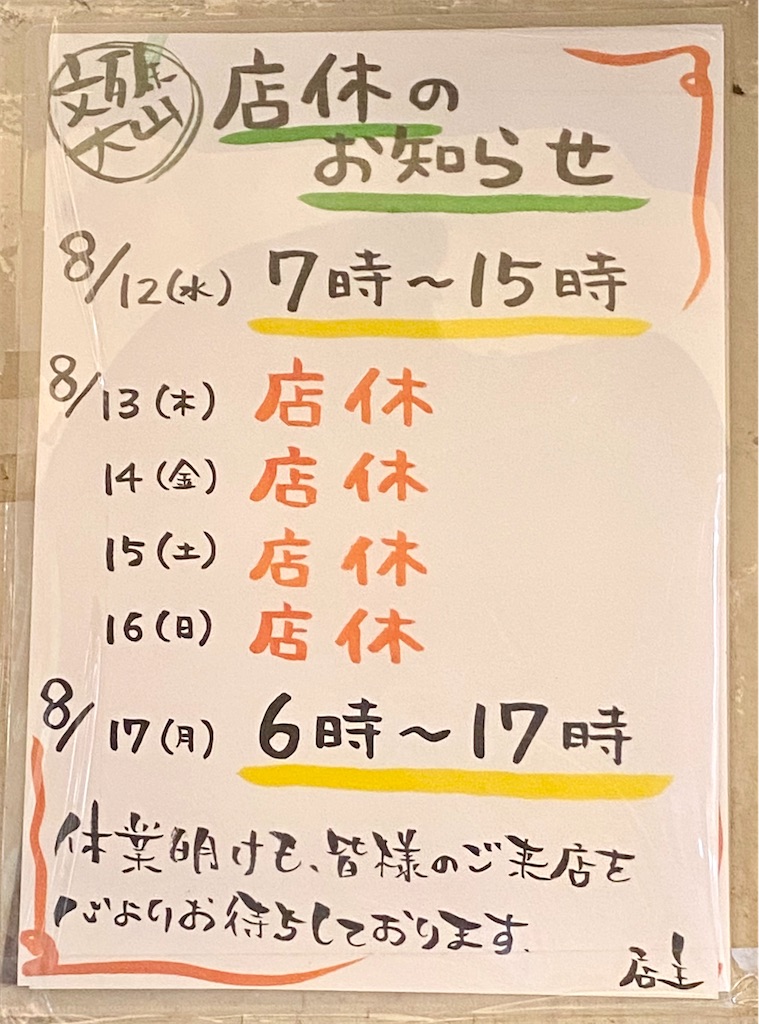 店休の
お知らせ
8/12(水) 7時～15時
8/13(木) 店休
14(金) 店休
15(土) 店休
16(日) 店休
8/17(月) 6時～17時
休業明けも、皆様のご来店を
心よりお待ちしております。
店主